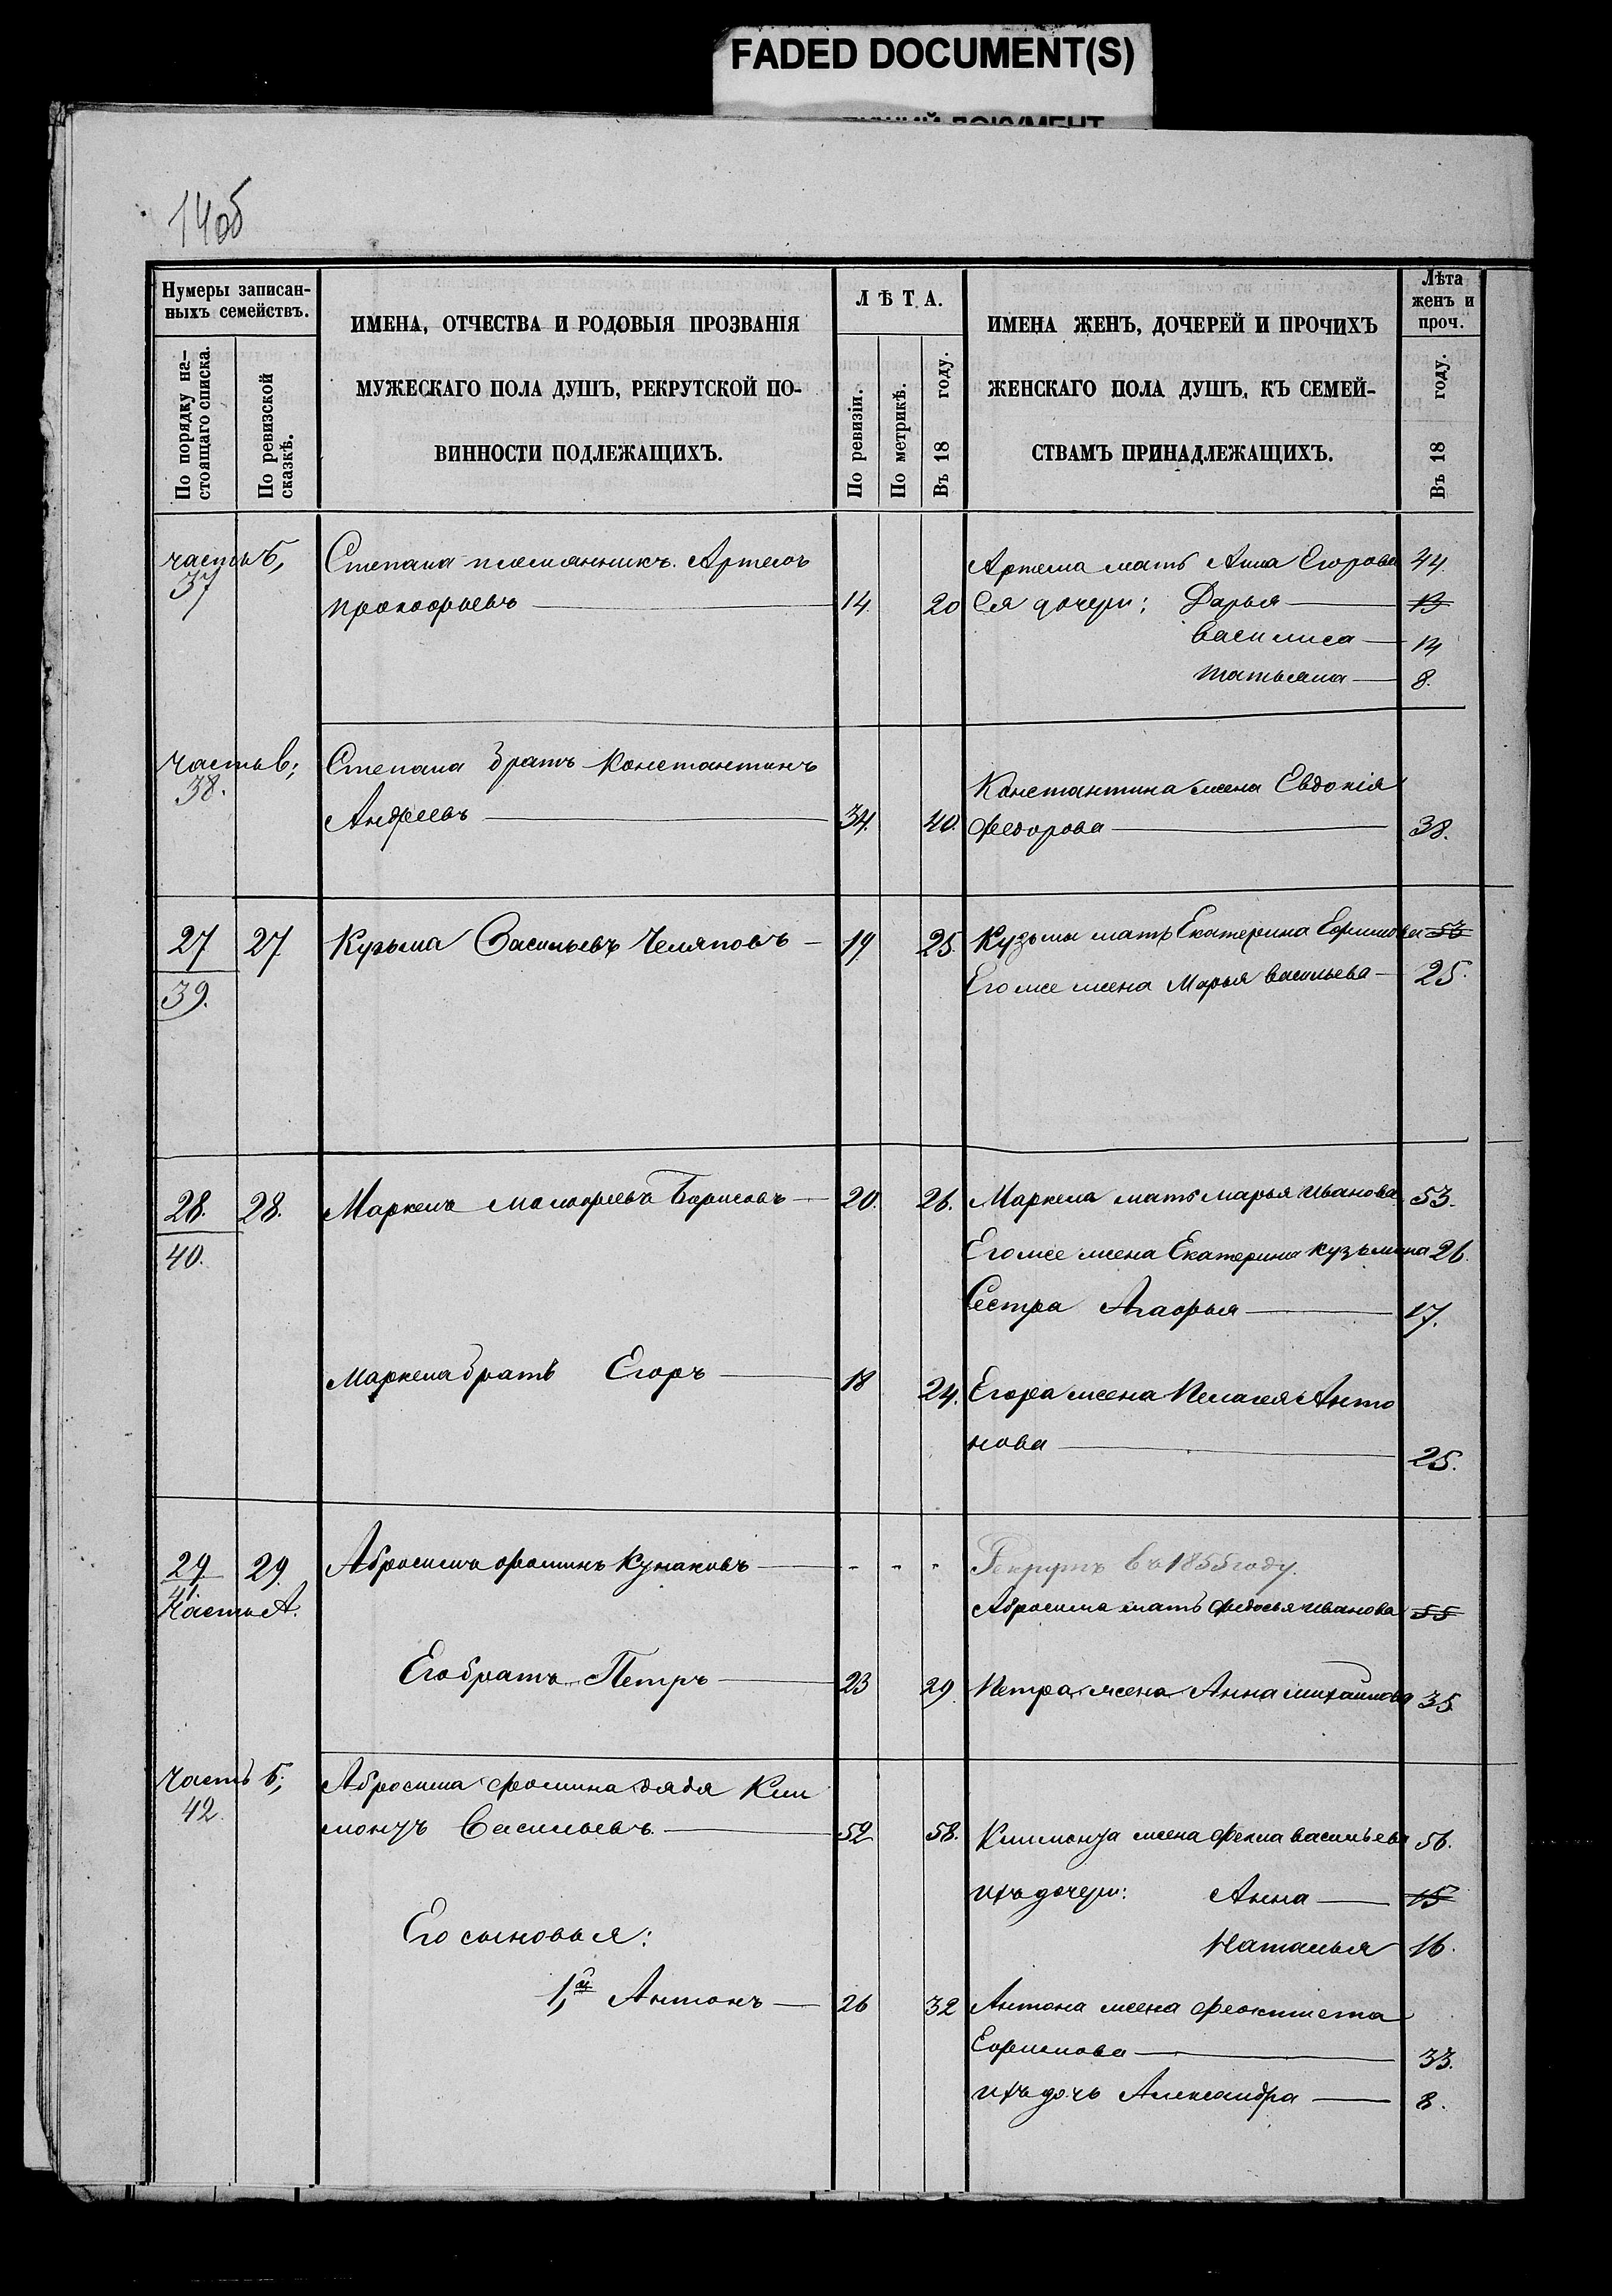 FADED DOCUMENT(S)
14об
Нумеры записан-
ныхъ семействъ.
По порядку на-
стоящаго списка.
По ревизской
сказкѣ.
ИМЕНА, ОТЧЕСТВА И РОДОВЫЯ ПРОЗВАНІЯ
МУЖЕСКАГО ПОЛА ДУШЪ, РЕКРУТСКОЙ ПО-
ВИННОСТИ ПОДЛЕЖАЩИХЪ.
ЛѢТА.
По ревизіи.
По метрикѣ.
Въ 18 году.
ИМЕНА ЖЕНЪ, ДОЧЕРЕЙ И ПРОЧИХЪ
ЖЕНСКАГО ПОЛА ДУШЪ, КЪ СЕМЕЙ-
СТВАМЪ ПРИНАДЛЕЖАЩИХЪ.
Лѣта
женъ и
проч.
Въ 18 году.
часть б, Степана племянникъ Артемъ Артема мать Анна Егорова 44.
37 Прокофьевъ 14. 20 Ея дочери: Дарья 13
Василиса 14
Татьяна 8.
Часть в; Степана братъ Константинъ
38. Константина жена Евдокія
Андреевъ 34. 40. Федорова 38.
27 27 Кузьма Васильевъ Челяповъ 19 25. Кузьмы мать Екатерина Ефимова 53
39. Его же жена Марья Васильева 25.
28. 28. Маркелъ Малофеевъ Борисовъ 20. 26. Маркела мать Марья Иванова 53.
40. Его же жена Екатерина Кузьмина 26.
Сестра Агафья 17.
Маркела братъ Егоръ 18 24. Егора жена Пелагея Анто
нова 25.
29 29. Абросимъ Фоминъ Кунаковъ - - - Рекрутъ въ 1855 году.
41.
Часть А. Абросима мать Федосья Иванова 55
Его братъ Петръ 23 29. Петра жена Анна Михайлова 35.
Часть б; Абросима Фомина дядя Кли
42. монтъ Васильевъ 52 58. Климонта жена Фекла Васильева 56.
Ихъ дочери: Анна 15
Его сыновья: Наталья 16.
1,й Антонъ 26 32 Антона жена Феоктиста
Ефимова 33.
Ихъ дочь Александра 8.